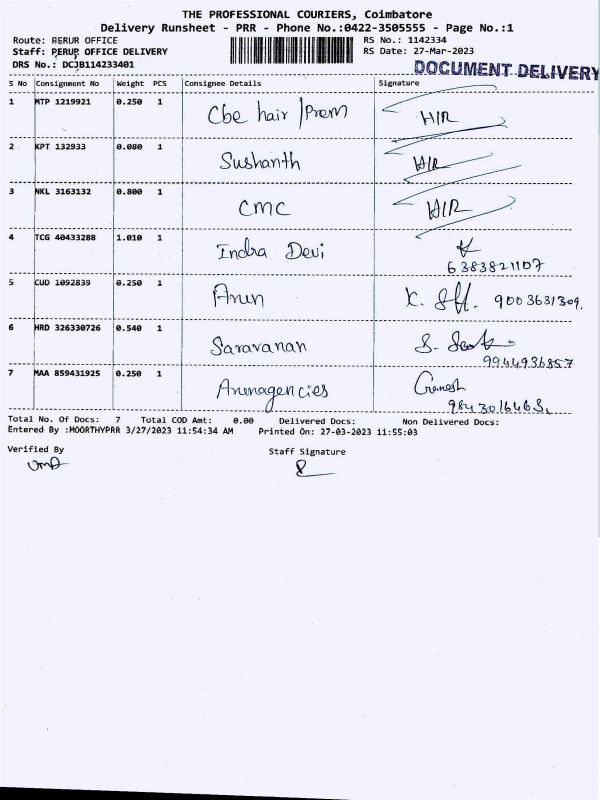 THE PROFESSIONAL COURIERS, Coimbatore
Delivery Runsheet - PRR - Phone No.:0422-3505555 - Page No.:1
Route: PERUR OFFICE RS No.: 1142334
Staff: PERUR OFFICE DELIVERY RS Date: 27-Mar-2023
DRS No.: DCJB114233401 DOCUMENT DELIVERY
S No Consignment No Weight PCS Consignee Details Signature
1 MTP 1219921 0.250 1 Cbe hair / Prem H/R
2 KPT 132933 0.080 1 Sushanth H/R
3 NKL 3163132 0.800 1 CMC H/R
4 TCG 40433288 1.010 1 Indra Devi
6383821107
5 CUD 1092839 0.250 1 Arun 9003631309.
6 HRD 326330726 0.540 1 Saravanan
9944936857
7 MAA 859431925 0.250 1 Arunagencies Ganesh
Total No. Of Docs: 7 Total COD Amt: 0.00 Delivered Docs: Non Delivered Docs:
Entered By :MOORTHYPRR 3/27/2023 11:54:34 AM Printed On: 27-03-2023 11:55:03
Verified By Staff Signature